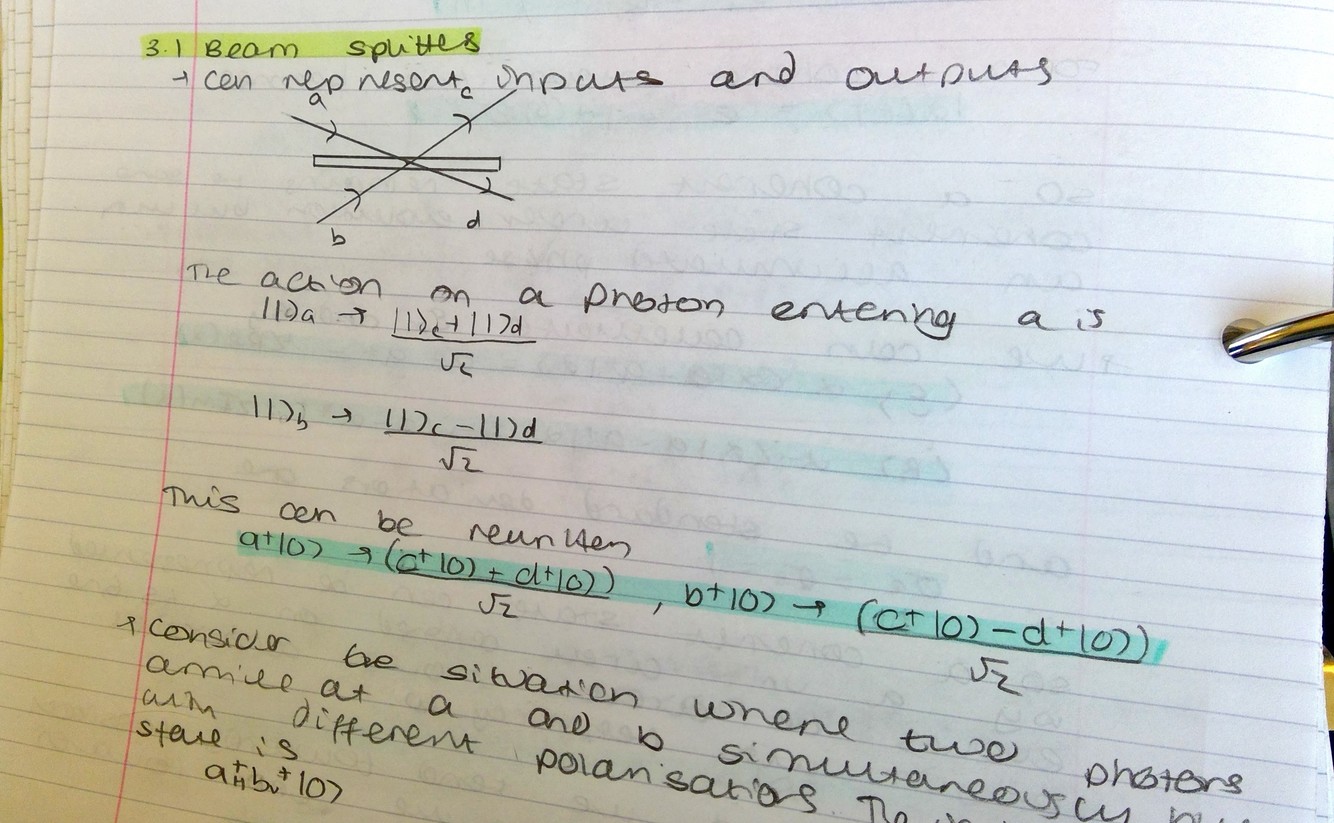 3.1 Beam splitters
→ can represent inputs and outputs
a c
b d
The action on a photon entering a is
|1⟩a → |1⟩c + |1⟩d
√2
|1⟩b → |1⟩c - |1⟩d
√2
This can be rewritten
a+|0⟩ → (c+|0⟩ + d+|0⟩) , b+|0⟩ → (c+|0⟩ - d+|0⟩)
√2 √2
→ consider the situation where two photons
arrive at a and b simultaneously but
with different polarisations. The
state is
a+H b+V |0⟩